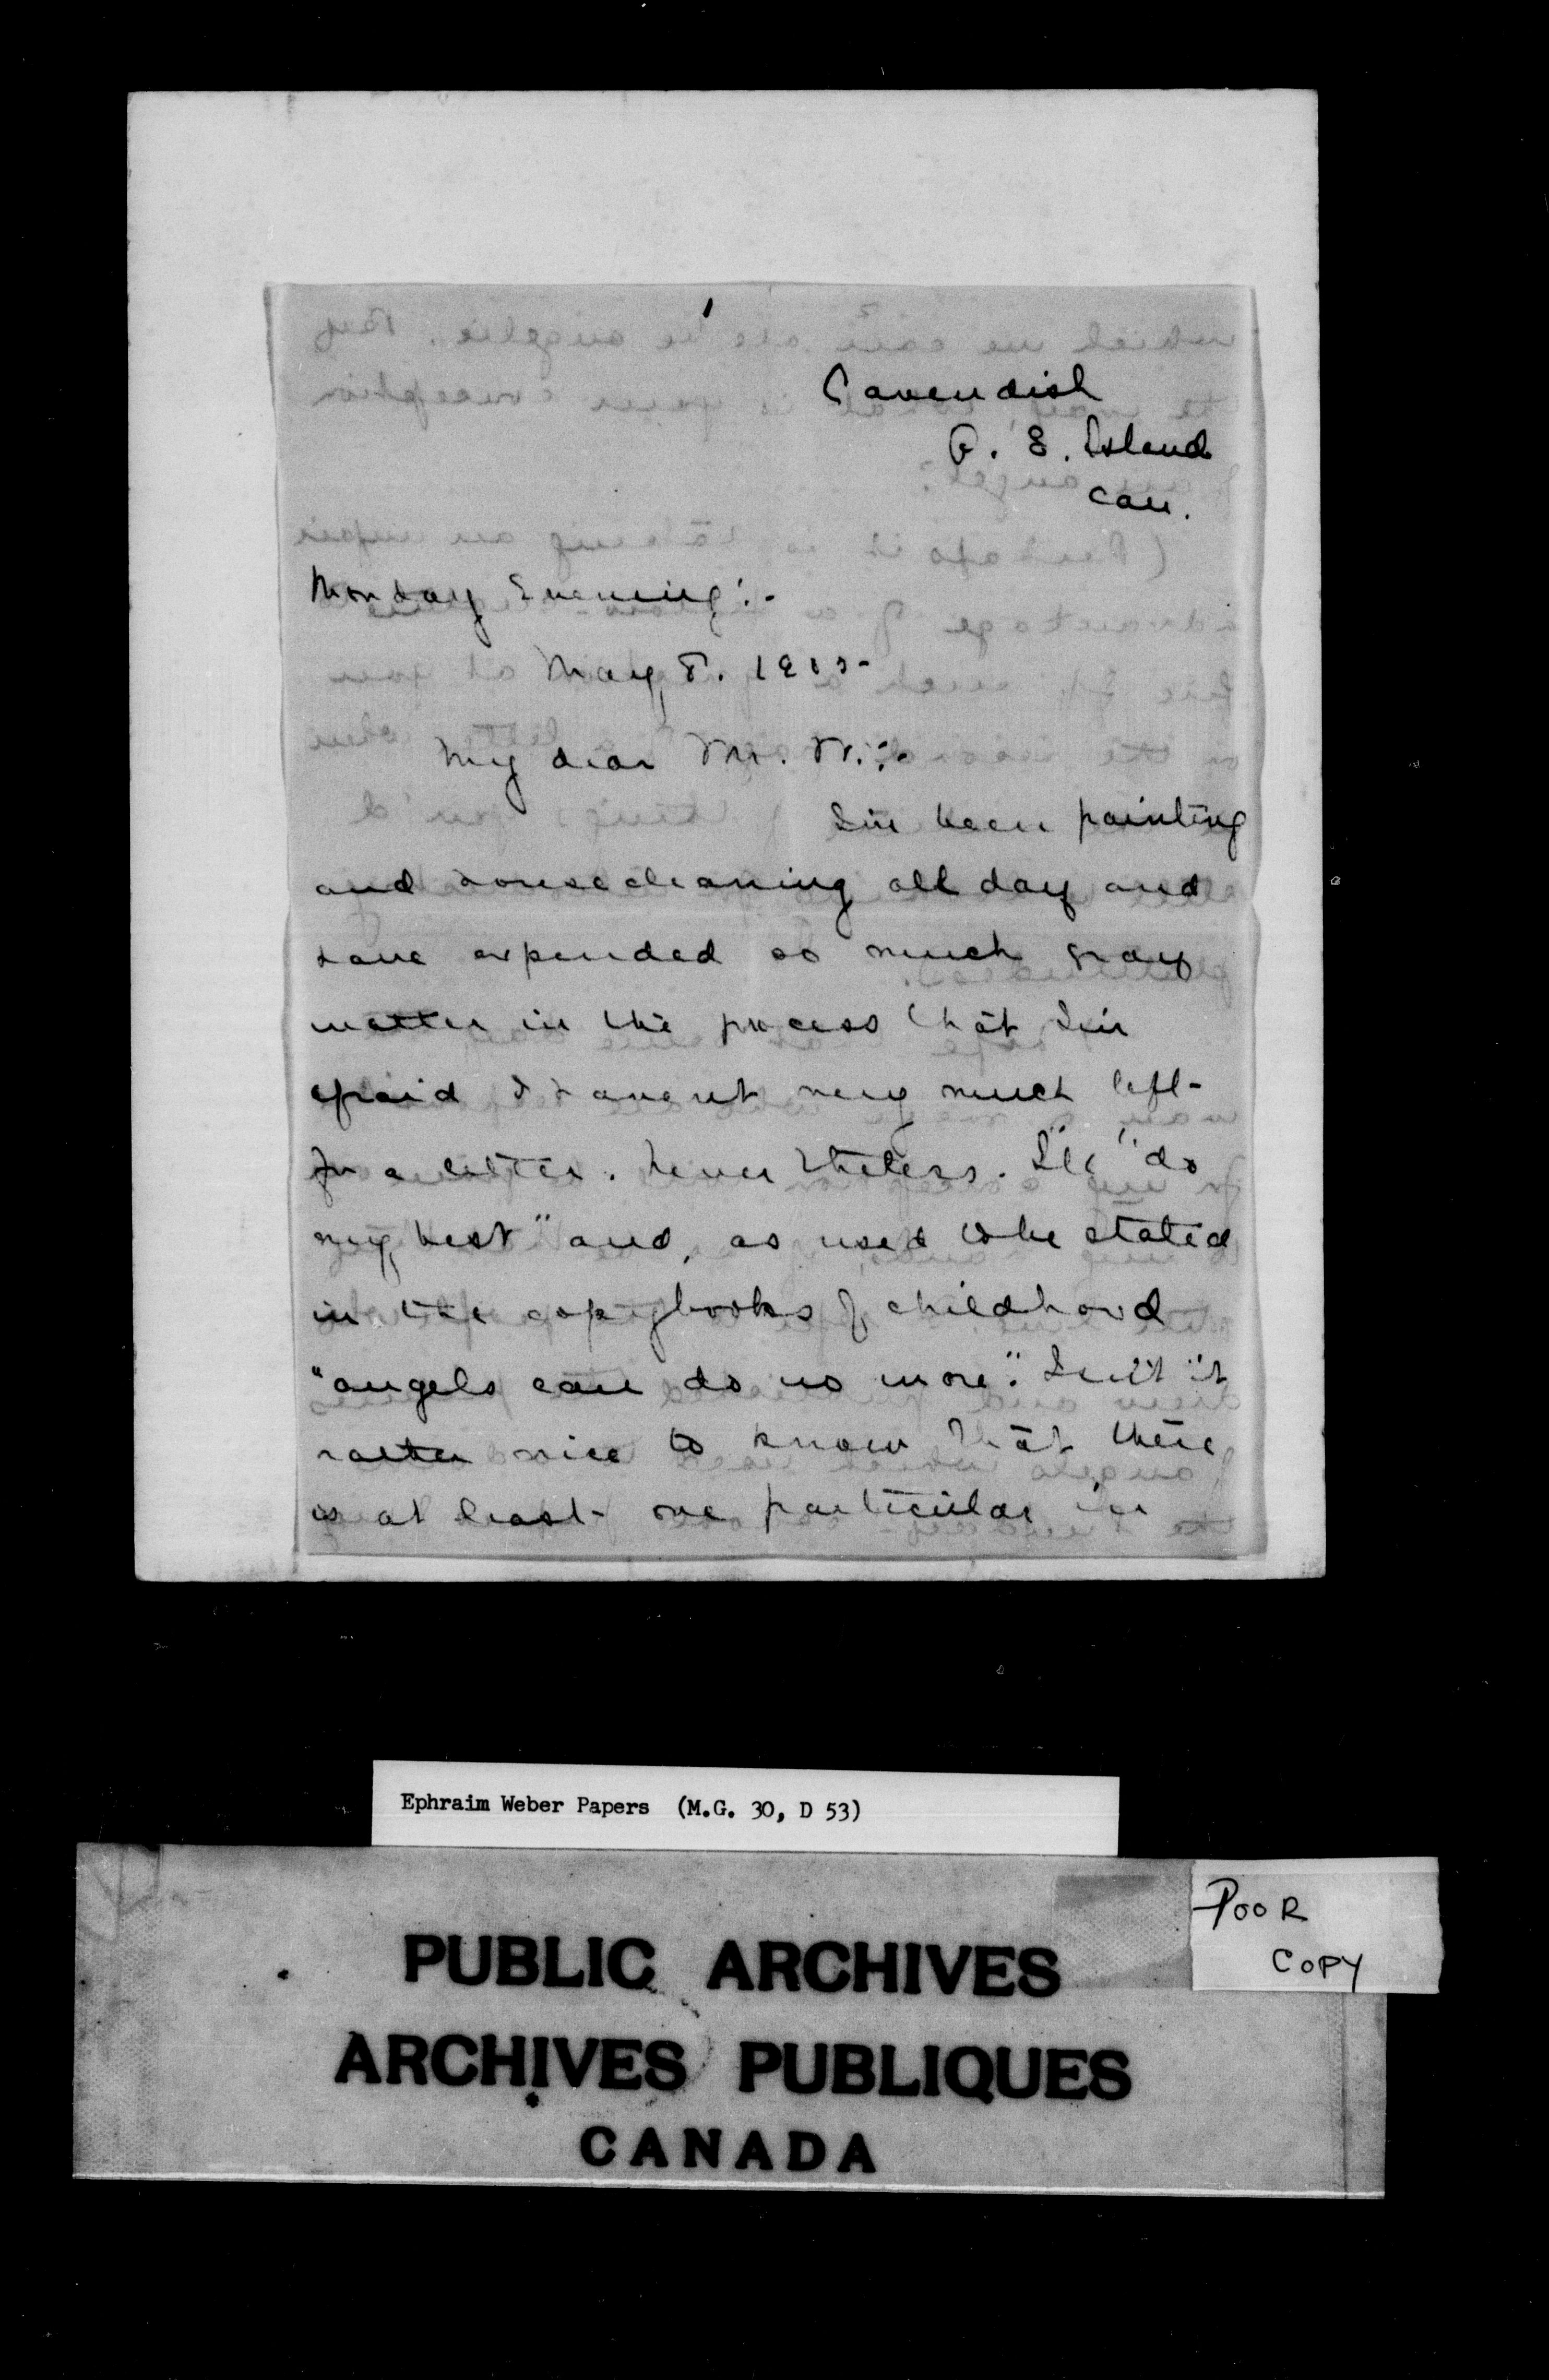 1
Cavendish
P. E. Island
Can.
Monday Evening:-
May, 8. 1905-
My dear Mr. W.:-
I've been painting
and housecleaning all day and
have expended so much gray
matter in the process that I'm
afraid I haven't very much left
for a letter. Nevertheless. I'll "do
my best" and, as used to be stated
in the copybooks of childhood
"angels can do no more". Isn't it
rather nice to know that there
is at least one particular in
Ephraim Weber Papers (M.G. 30, D 53)
POOR
COPY
PUBLIC ARCHIVES
ARCHIVES PUBLIQUES
CANADA